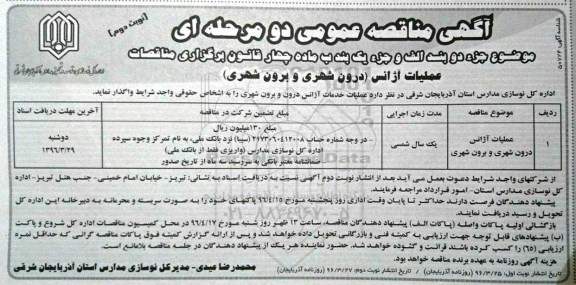 آگهی مناقصه عمومی دو مرحله ای
(نوبت دوم)
موضوع جزء دو بند الف و جزء یک بند ب ماده چهار قانون برگزاری مناقصات
عملیات آژانس (درون شهری و برون شهری)
اداره کل نوسازی مدارس استان آذربایجان شرقی در نظر دارد عملیات خدمات آژانس درون و برون شهری را به اشخاص حقوقی واجد شرایط واگذار نماید.
ردیف موضوع مناقصه مدت زمان اجرایی مبلغ تضمین شرکت در مناقصه آخرین مهلت دریافت اسناد
۱ عملیات آژانس درون شهری و برون شهری یک سال شمسی مبلغ ۱۳۰میلیون ریال دوشنبه ۱۳۹۶/۳/۲۹
در وجه شماره حساب ۲۱۷۳۰۶۰۴۱۲۰۰۸ (سیبا) نزد بانک ملی، به نام تمرکز وجوه سپرده
اداره کل نوسازی مدارس (واریزی فقط از بانک ملی)
ضمانتنامه معتبر بانکی به سررسید سه ماه از تاریخ صدور
از شرکتهای واجد شرایط دعوت بعمل می آید بعد از انتشار نوبت دوم آگهی نسبت به دریافت اسناد به نشانی: تبریز - خیابان امام خمینی - جنب هتل تبریز - اداره
کل نوسازی مدارس استان - امور قرارداد مراجعه فرمایند.
پیشنهاد دهندگان فرصت دارند حداکثر تا پایان وقت اداری روز پنجشنبه مورخ ۹۶/۴/۱۵ پاکتهای خود را به صورت سربسته و محرمانه به دبیرخانه این اداره کل
تحویل و رسید دریافت نمایند.
بازگشائی اولیه پاکات واصله (پاکات الف) پیشنهاد دهندگان ساعت ۱۳ ظهر روز شنبه مورخ ۹۶/۴/۱۷ در محل کمیسیون مناقصات اداره کل شروع و پاکت
(ب) پیشنهادهای قابل توجه جهت ارزیابی به کمیته فنی و بازرگانی تحویل داده خواهد شد و پس از ارائه گزارش کمیته فوق پاکات مناقصه گرانی که حداقل نمره
ارزیابی (۶۵) را کسب کرده باشند قرائت و گشوده خواهد شد. حضور نماینده هر یک از پیشنهاد دهندگان در جلسه مناقصه بلامانع است.
هزینه آگهی روزنامه به عهده برنده مناقصه خواهد بود.
تاریخ انتشار نوبت اول: ۹۶/۳/۲۵ (روزنامه آذربایجان) / تاریخ انتشار نوبت دوم: ۹۶/۳/۲۷ (روزنامه آذربایجان)
محمدرضا عیدی - مدیرکل نوسازی مدارس استان آذربایجان شرقی